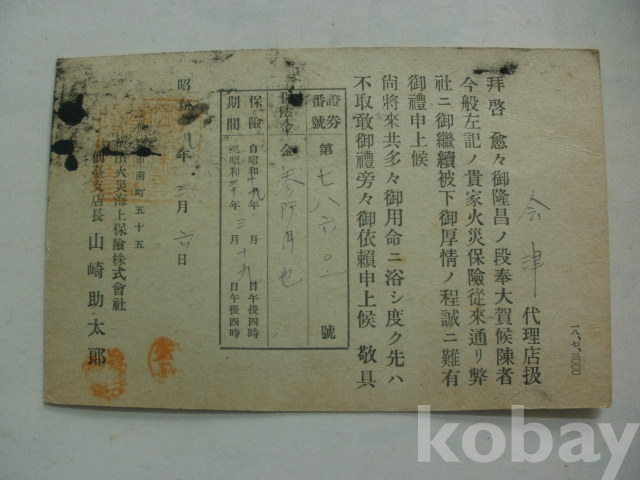 会津 代理店扱
拝啓 愈々御隆昌ノ段奉大賀候陳者
今般左記ノ貴家火災保險従来通リ弊
社ニ御継續被下御厚情ノ程誠ニ難有
御禮申上候
尚將来共多々御用命ニ浴シ度ク先ハ
不取敢御禮旁々御依賴申上候 敬具
證券番號 第七八六〇 號
金参阡円也
保險期間 自昭和十九年三月十九日午後四時
至昭和二十年三月十九日午後四時
昭和 九年三月六日
市南町五十五
火災海上保險株式會社
仙臺支店長 山崎助太郎
一八、七、
kobay